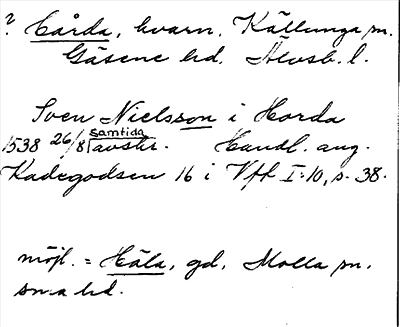 ? Hårda, kvarn, Källunga sn.
Gäsene hd. Älvsb. l.
Sven Nielsson i Horda
1538 26/8 samtida avskr. Handl. ang.
Kadegodsen 16 i Vft I:10, s. 38.
möjl. = Håla, gd, Molla sn.
sn.a hd.